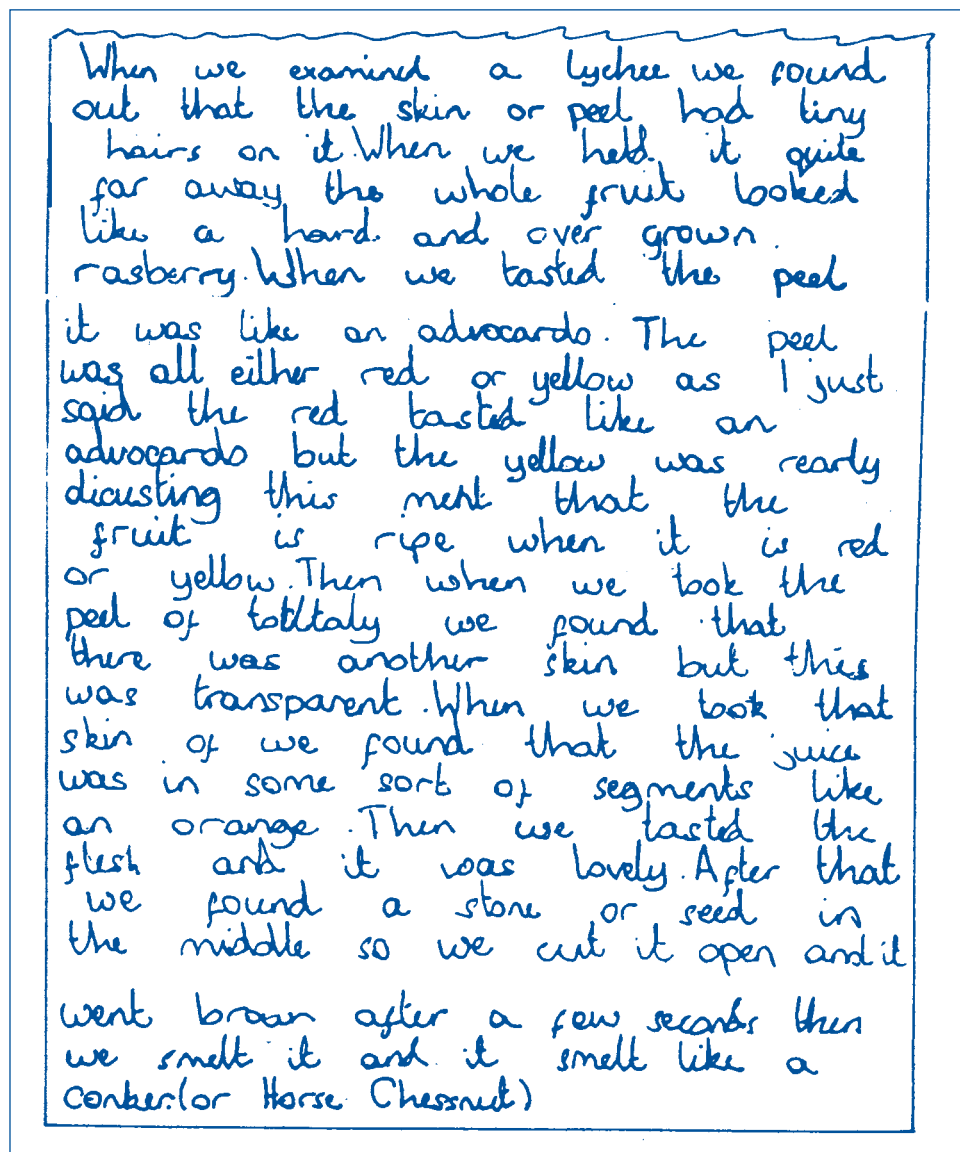 When we examined a lychee we found
out that the skin or peel had tiny
hairs on it. When we held it quite
far away the whole fruit looked
like a hard and over grown
rasberry. When we tasted the peel
it was like an advocardo. The peel
was all either red or yellow as I just
said the red tasted like an
advocardo but the yellow was rearly
dicusting this ment that the
fruit is ripe when it is red
or yellow. Then when we took the
peel of totltaly we found that
there was another skin but this
was transparent. When we took that
skin of we found that the juice
was in some sort of segments like
an orange. Then we tasted the
flesh and it was lovely. After that
we found a stone or seed in
the middle so we cut it open and it
went brown after a few seconds then
we smelt it and it smelt like a
conker. (or Horse Chessnut)